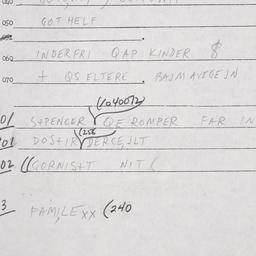 050 GOT HELF
060 INDERFRI QAP KINDER 8
070 + QS ELTERE . BAJM AVIGEJN
(1040072)
01 S+PENCER QF ROMPER FAR IN
(256
01 DOSTIR DERCEJLT
02 ((GORNIS+T NIT(
3 FAMJLEXX (240